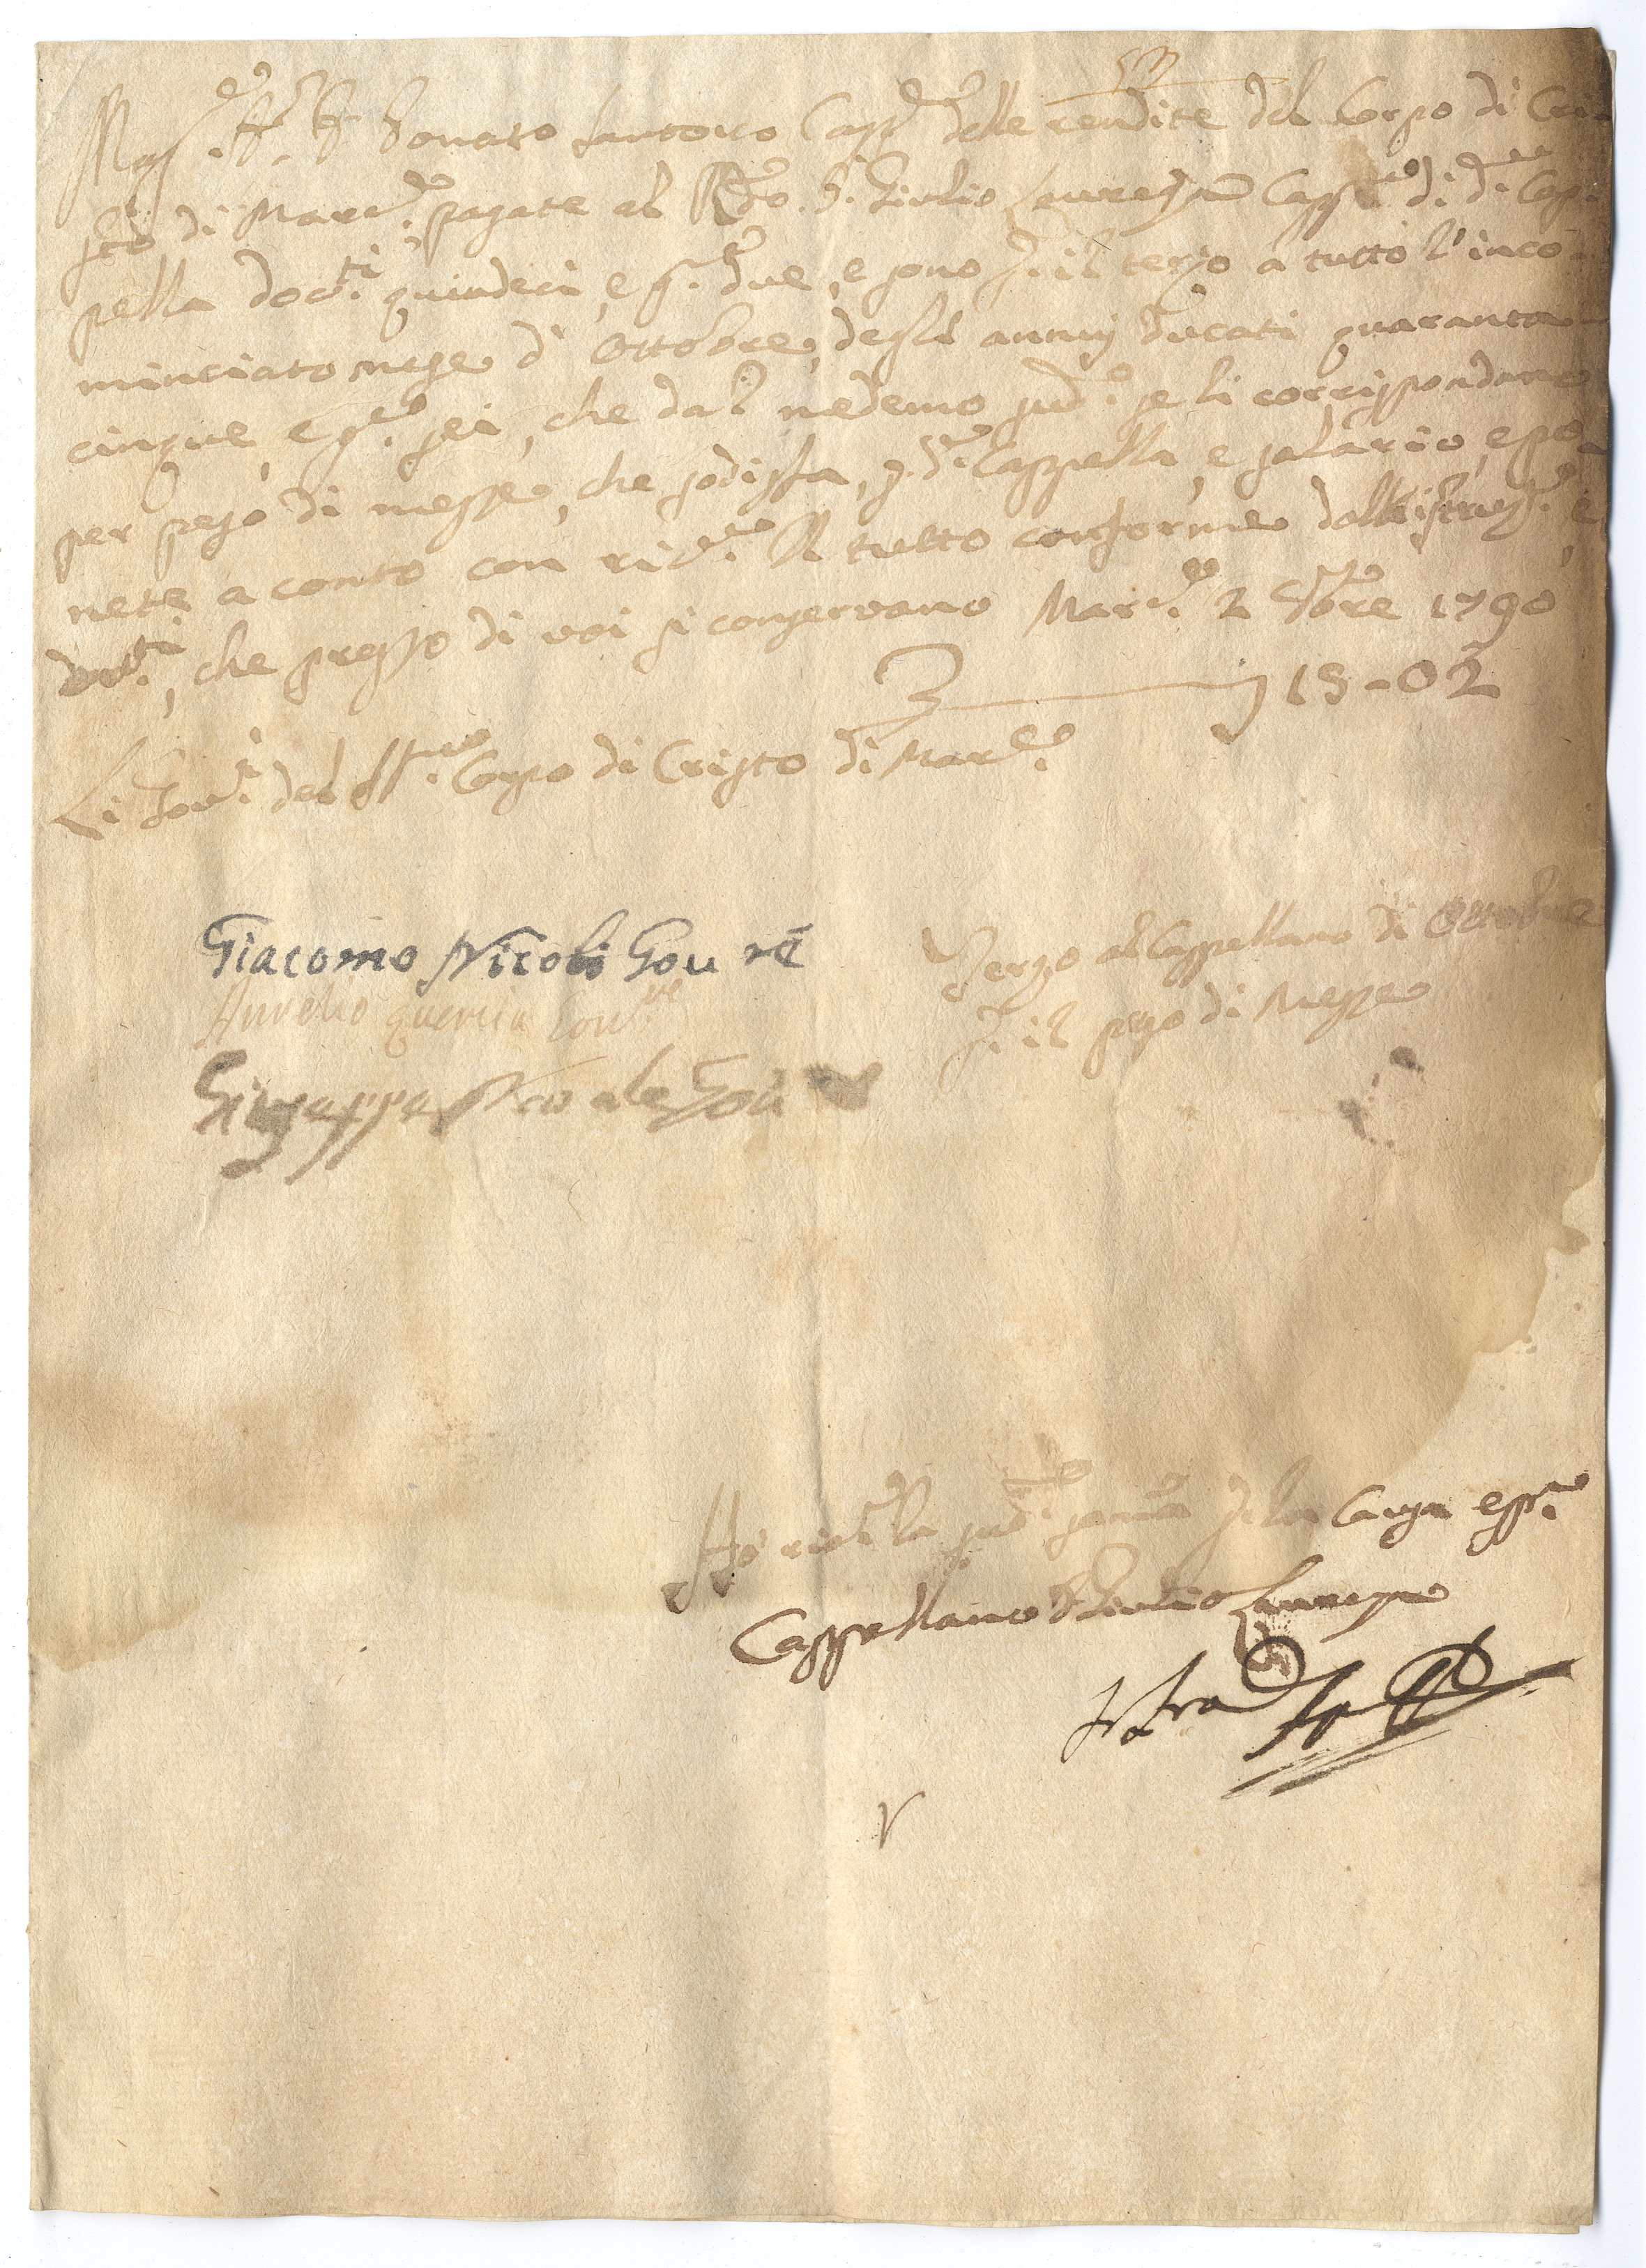 Donato Santoro Cass.re delle rendite del Corpo di Cri-
sto di Mar.e pagate al R.do D. Giulio Capp.no di d.a Cap-
pella doc.ti quindeci, e g.a due, e sono p. il terzo a tutto l'inco-
minciato mese d' Ottobre, degli annuj ducati quaranta-
cinque, e g.a sei, che dal medemo sud.o se li corrispondano
per peso di messe, che sodisfa, p. d.a Cappella, e salario, e po-
nete a conto con ric.e Il tutto conforme dalle istruz.i, e
doc.ti, che presso di voi si conservano Mar.e 2 8bre 1790
15-02
Li Gov.i del SS.mo Corpo di Cristo di Mar.e
Giacomo Nicoli Gov re
Aurelio quercia Gov.re
Giuseppe Gov
Terzo al Cappellano di Ottobre
p. il peso di Messe
Ho ric.to la sud.a somma p. la Causa esp.a
Cappellano D. Giulio